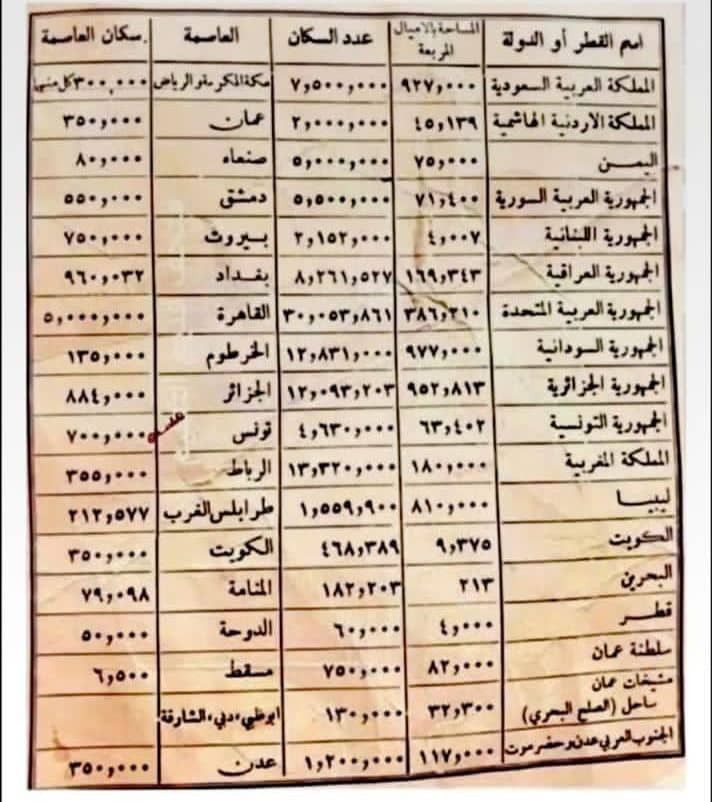 اسم القطر أو الدولة المساحة بالأميال المربعة عدد السكان العاصمة سكان العاصمة
المملكة العربية السعودية ٩٢٧,٠٠٠ ٧,٥٠٠,٠٠٠ مكة المكرمة والرياض ٣٠٠,٠٠٠ كل منهما
المملكة الاردنية الهاشمية ٤٥,١٣٩ ٢,٠٠٠,٠٠٠ عمان ٣٥٠,٠٠٠
اليمن ٧٥,٠٠٠ ٥,٠٠٠,٠٠٠ صنعاء ٨٠,٠٠٠
الجمهورية العربية السورية ٧١,٤٠٠ ٥,٥٠٠,٠٠٠ دمشق ٥٥٠,٠٠٠
الجمهورية اللبنانية ٤,٠٠٧ ٢,١٥٢,٠٠٠ بيروت ٧٥٠,٠٠٠
الجمهورية العراقية ١٦٩,٣٤٣ ٨,٢٦١,٥٢٧ بغداد ٩٦٠,٠٣٢
الجمهورية العربية المتحدة ٣٨٦,٢١٠ ٣٠,٠٥٣,٨٦١ القاهرة ٥,٠٠٠,٠٠٠
الجمهورية السودانية ٩٧٧,٠٠٠ ١٢,٨٣١,٠٠٠ الخرطوم ١٣٥,٠٠٠
الجمهورية الجزائرية ٩٥٢,٨١٣ ١٢,٠٩٣,٢٠٣ الجزائر ٨٨٤,٠٠٠
الجمهورية التونسية ٦٣,٤٠٢ ٤,٦٣٠,٠٠٠ تونس ٧٠٠,٠٠٠
المملكة المغربية ١٨٠,٠٠٠ ١٣,٣٢٠,٠٠٠ الرباط ٣٥٥,٠٠٠
ليبيا ٨١٠,٠٠٠ ١,٥٥٩,٩٠٠ طرابلس الغرب ٢١٢,٥٧٧
الكويت ٩,٣٧٥ ٤٦٨,٣٨٩ الكويت ٣٥٠,٠٠٠
البحرين ٢١٣ ١٨٢,٢٠٣ المنامة ٧٩,٠٩٨
قطر ٤,٠٠٠ ٦٠,٠٠٠ الدوحة ٥٠,٠٠٠
سلطنة عمان ٨٢,٠٠٠ ٧٥٠,٠٠٠ مسقط ٦,٥٠٠
مشيخات عمان
ساحل (الصلح البحري) ٣٢,٣٠٠ ١٣٠,٠٠٠ ابوظبي، دبي، الشارقة
الجنوب العربي عدن وحضرموت ١١٧,٠٠٠ ١,٢٠٠,٠٠٠ عدن ٣٥٠,٠٠٠